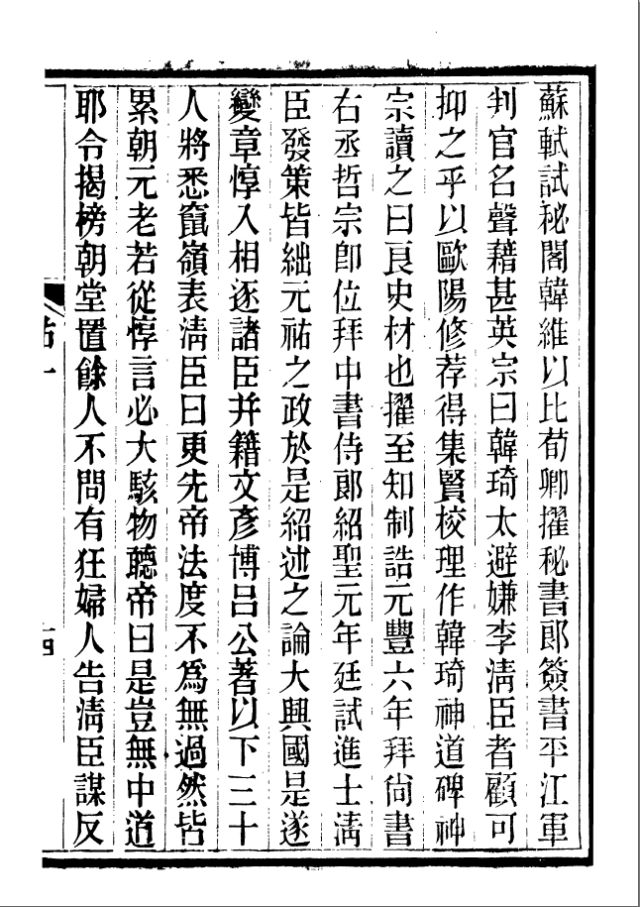 蘇軾試秘閣韓維以比荀卿擢秘書郎簽書平江軍
判官名聲藉甚英宗曰韓琦太避嫌李淸臣者顧可
抑之乎以歐陽修荐得集賢校理作韓琦神道碑神
宗讀之曰良史材也擢至知制誥元豐六年拜尙書
右丞哲宗卽位拜中書侍郞紹聖元年廷試進士淸
臣發策皆絀元祐之政於是紹述之論大興國是遂
變章惇入相逐諸臣并籍文彥博呂公著以下三十
人將悉竄嶺表淸臣曰更先帝法度不爲無過然皆
累朝元老若從惇言必大駭物聽帝曰是豈無中道
耶令揭榜朝堂置餘人不問有狂婦人告淸臣謀反